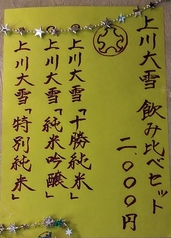 上川大雪 飲み比べセット
二、〇〇〇円
上川大雪「十勝純米」
上川大雪「純米吟醸」
上川大雪「特別純米」